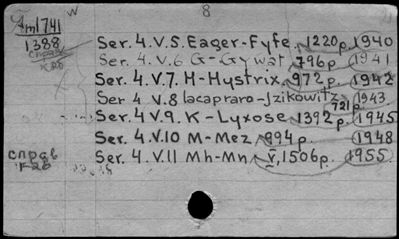 W 8
Am1741
1388
справ
к26
Ser. 4.V.5. Eager-Fyfe, 1220p. 1940
Ser. 4.V.6 G-Gywat, 796p. 1941
Ser. 4.V.7. H-Hystrix, 972p. 1942
Ser 4 V.8 Iacapraro-Jzikowitz 721p. 1943
Ser. 4V.9. K-Lyxose, 1392p. 1945
Ser. 4.V.10 M-Mez, 994p. 1948
справ
к26
Ser. 4.V.11 Mh-Mn, V, 1506p. 1955